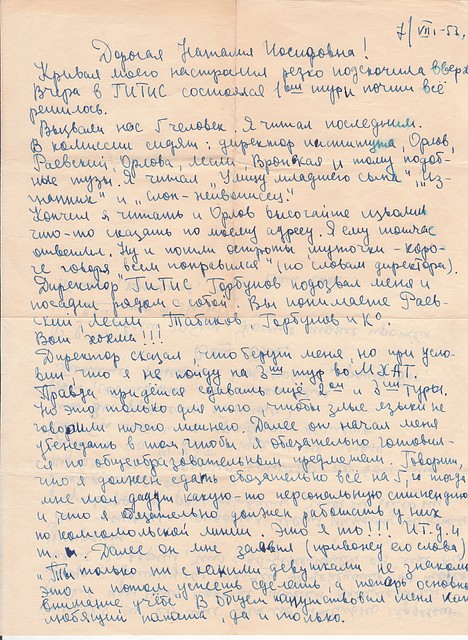 7/VIII-53.
Дорогая Наталия Иосифовна!
Кривая моего настроения резко подскочила вверх
Вчера в ГИТИС состоялся 1ый тур и почти всё
решилось.
Вызвали нас 5 человек. Я читал последним.
В комиссии сидят: директор института, Орлов,
Раевский Орлова, Лесли Вронская и тому подоб-
ные тузы. Я читал „Улицу младшего сына", „Из-
гнанник" и „Слон-живописец".
Кончил я читать и Орлов высочайше изволил
что-то сказать по моему адресу. Я ему тотчас
ответил. Ну и пошли остроты шуточки - коро-
че говоря „всем понравился" (по словам директора).
Директор ГИТИС Горбунов подозвал меня и
посадил рядом с собой. Вы понимаете Раев-
ский, Лесли, Табаков, Горбунов и К°.
Вот хохма!!!
Директор сказал, что берут меня, но при усло-
вии что я не пойду на 3ий тур во МХАТ.
Правда придётся сдавать ещё 2ой и 3ий туры.
Но это только для того, чтобы злые языки не
говорили ничего лишнего. Далее он начал меня
убеждать в том, чтобы я обязательно готовил-
ся по общеобразовательным предметам. Говорит,
что я должен сдать обязательно всё на 5, и тогда
мне мол дадут какую-то персональную стипендию
и что я обязательно должен работать у них
по комсомольской линии. Это я то!!! И т.д. и
т. п. Далее он мне заявил (привожу его слова)
„Ты только ни с какими девушками не знакомься
это и потом успеешь сделать, а теперь основное
внимание учёбе". В общем напутствовал меня как
любящий папаша, да и только.